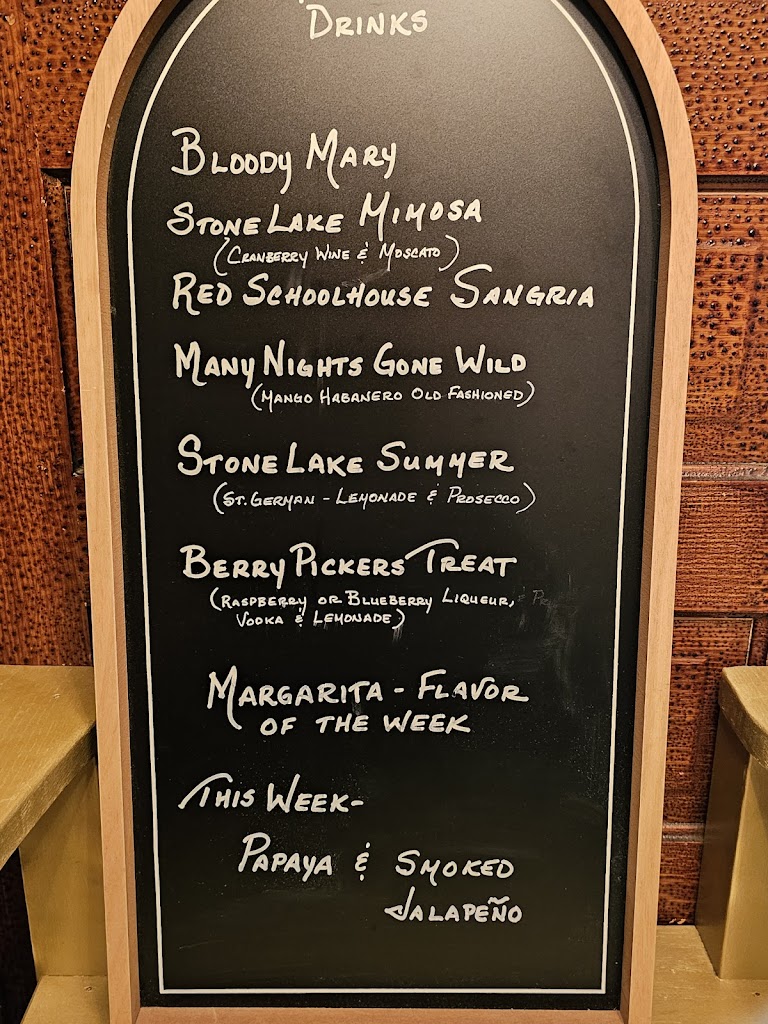 Drinks
Bloody Mary
Stone Lake Mimosa
(Cranberry Wine & Moscato)
Red Schoolhouse Sangria
Many Nights Gone Wild
(Mango Habanero Old Fashioned)
Stone Lake Summer
(St. German - Lemonade & Prosecco)
Berry Pickers Treat
(Raspberry or Blueberry Liqueur,
Vodka & Lemonade)
Margarita - Flavor
of the week
This Week-
Papaya & Smoked
Jalapeño